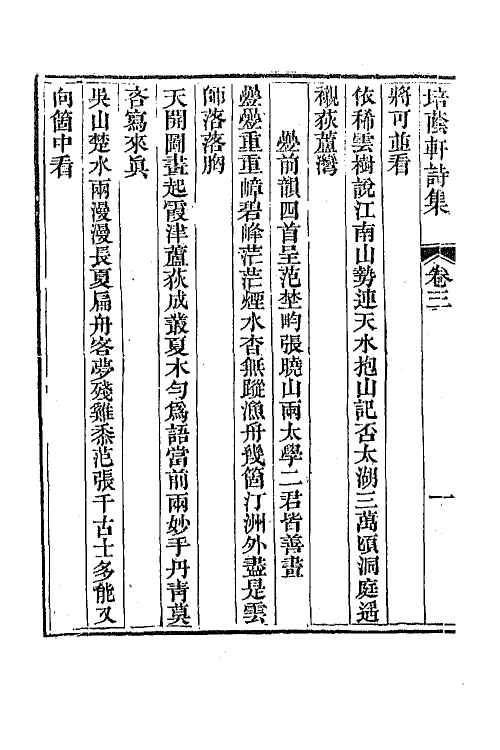 培蔭軒詩集 卷三 一
將可並看
依稀雲樹說江南山勢連天水抱山記否太湖三萬頃洞庭遥
襯荻蘆灣
疊前韻四首呈范埜畇張曉山兩太學二君皆善畫
疊疊重重嶂碧峰茫茫煙水杳無蹤漁舟幾箇汀洲外盡是雲
師落落胸
天開圖畫起霞津蘆荻成叢夏木勻爲語當前兩妙手丹青莫
吝寫來眞
吳山楚水兩漫漫長夏扁舟客夢殘雞黍范張千古士多能又
向箇中看